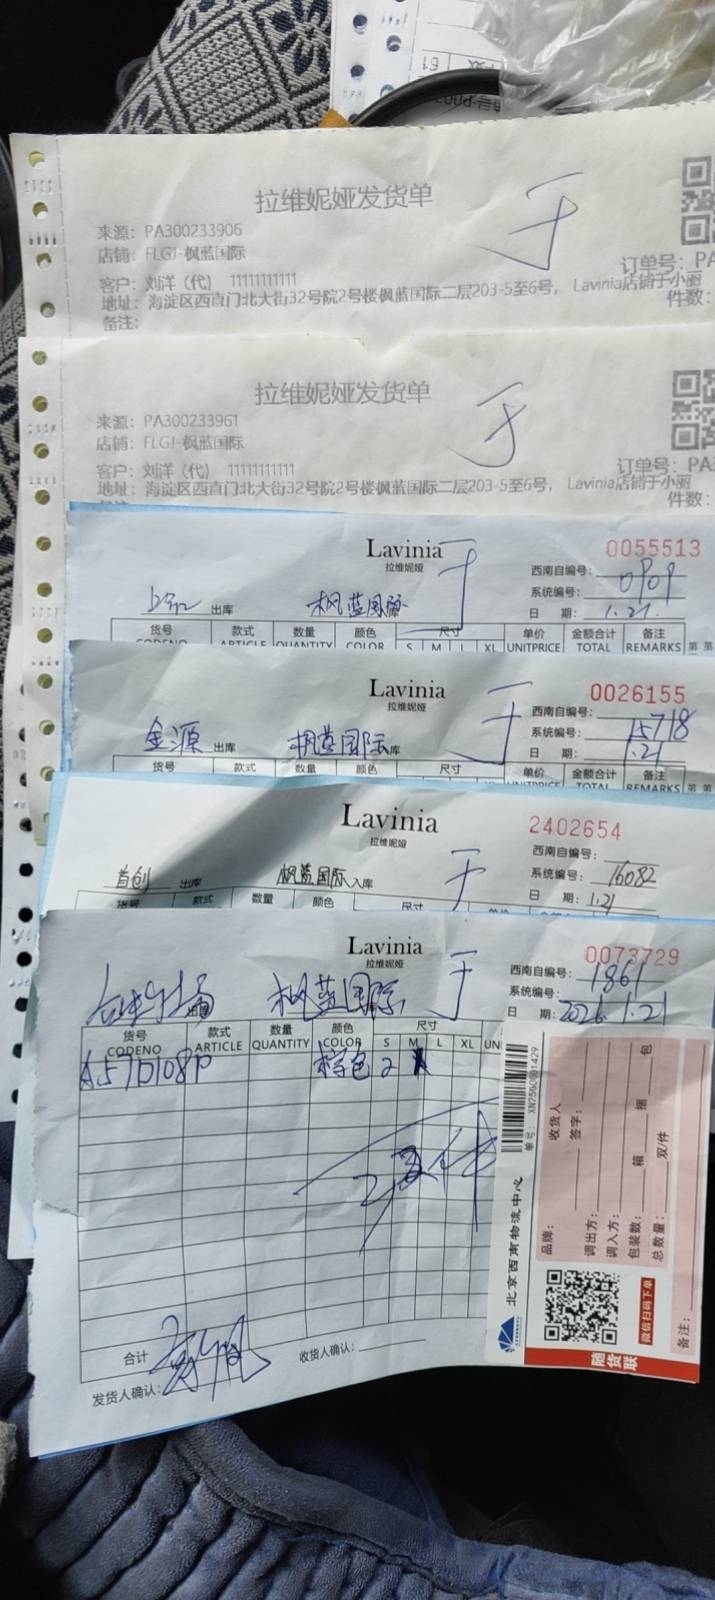 拉维妮娅发货单
于
来源: PA300233906
店铺: FLGJ-枫蓝国际
订单号: PA
客户: 刘洋（代） 11111111111
地址: 海淀区西直门北大街32号院2号楼枫蓝国际二层203-5至6号， Lavinia店铺于小丽
件数:
备注:
拉维妮娅发货单
于
来源: PA300233961
店铺: FLGJ-枫蓝国际
订单号: PA
客户: 刘洋（代） 11111111111
地址: 海淀区西直门北大街32号院2号楼枫蓝国际二层203-5至6号， Lavinia店铺于小丽
件数:
Lavinia
拉维妮娅
于
0055513
西南自编号:
系统编号: 0909
日 期: 1.21
出库 枫蓝国际
货号 款式 数量 颜色 尺寸 单价 金额合计 备注
CODENO ARTICLE QUANTITY COLOR S M L XL UNITPRICE TOTAL REMARKS
Lavinia
拉维妮娅
于
0026155
西南自编号:
系统编号: 15718
日 期: 1.21
金源 出库 枫蓝国际 库
货号 款式 数量 颜色 尺寸 单价 金额合计 备注
Lavinia
拉维妮娅
于
2402654
西南自编号:
系统编号: 16082
日 期: 1.21
首创 出库 枫蓝国际 入库
货号 款式 数量 颜色 尺寸
Lavinia
拉维妮娅
于
0073729
西南自编号:
系统编号: 1861
日 期: 2026.1.21
枫蓝国际
货号 款式 数量 颜色 尺寸
CODENO ARTICLE QUANTITY COLOR S M L XL
棕色 2
2件
合计
发货人确认:
收货人确认:
单号: XN25G0001429
北京西南物流中心
品牌:
收货人
签字:
调出方:
调入方:
包装数: 箱 捆 包
总数量: 双/件
备注:
微信扫码下单
随货联